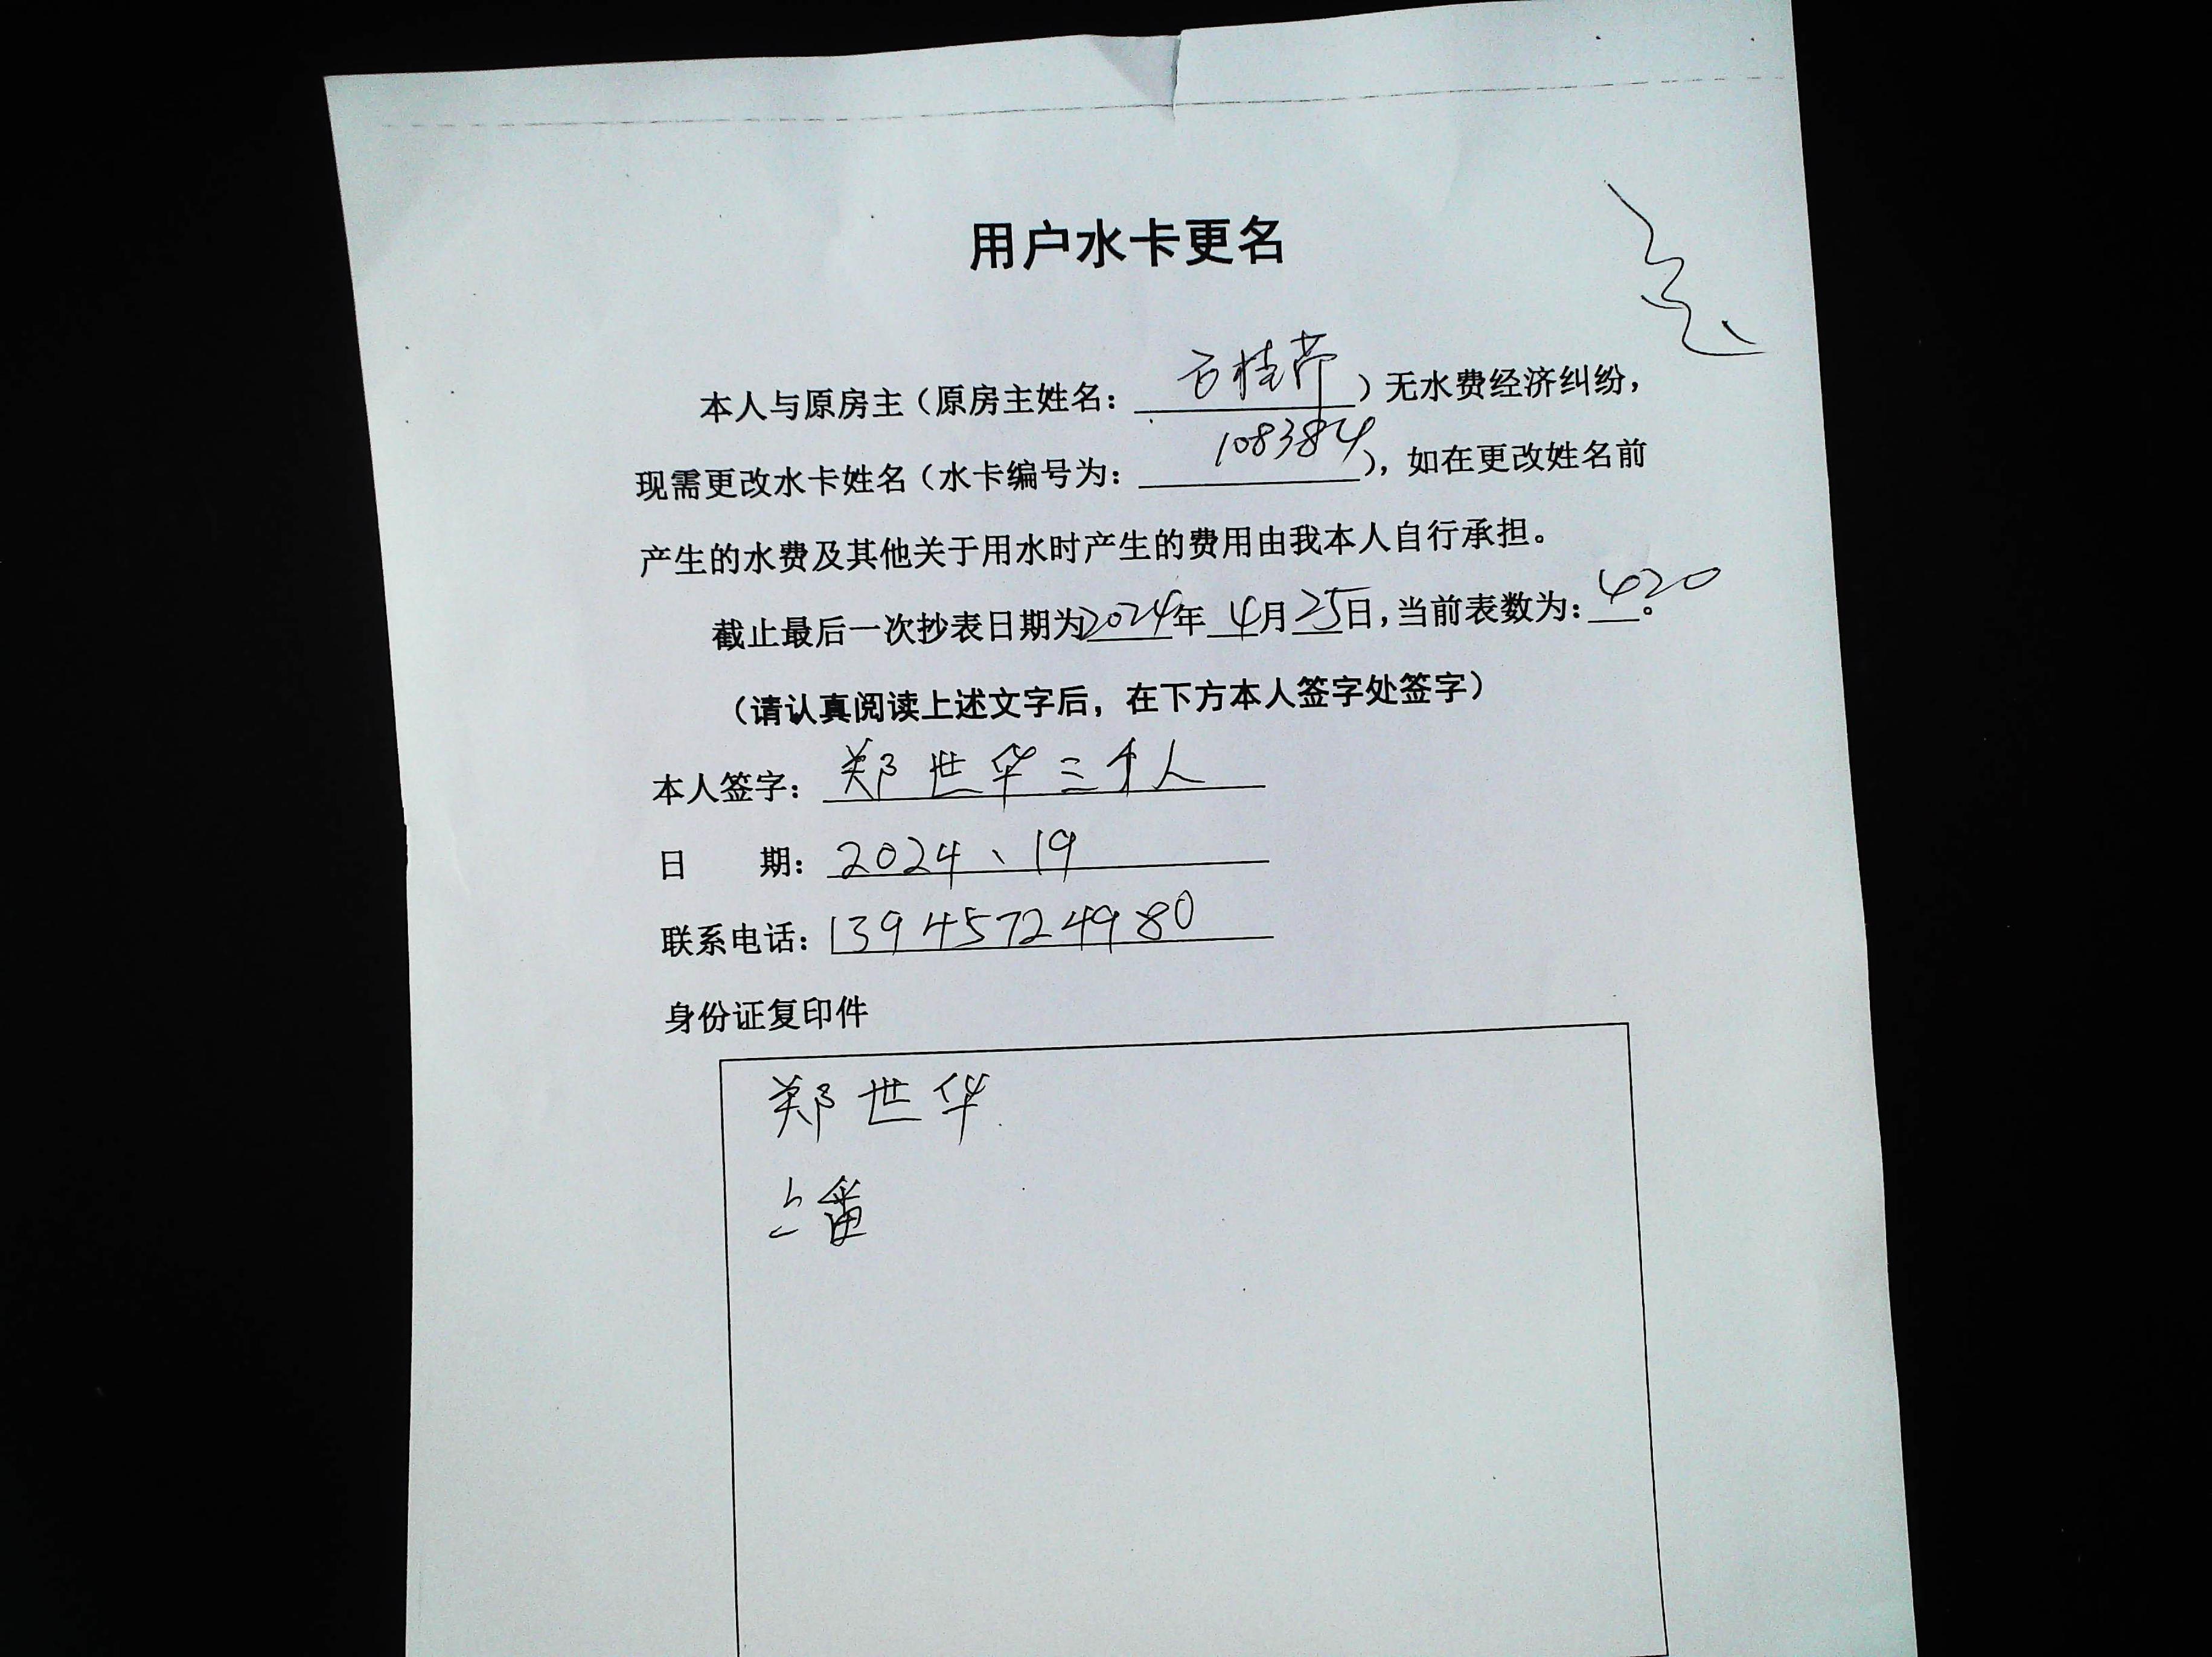 用户水卡更名
本人与原房主（原房主姓名：石桂芹）无水费经济纠纷，
现需更改水卡姓名（水卡编号为：108384），如在更改姓名前
产生的水费及其他关于用水时产生的费用由我本人自行承担。
截止最后一次抄表日期为2024年4月25日，当前表数为：420。
（请认真阅读上述文字后，在下方本人签字处签字）
本人签字：郑世华三个人
日 期：2024、19
联系电话：13945724980
身份证复印件
郑世华